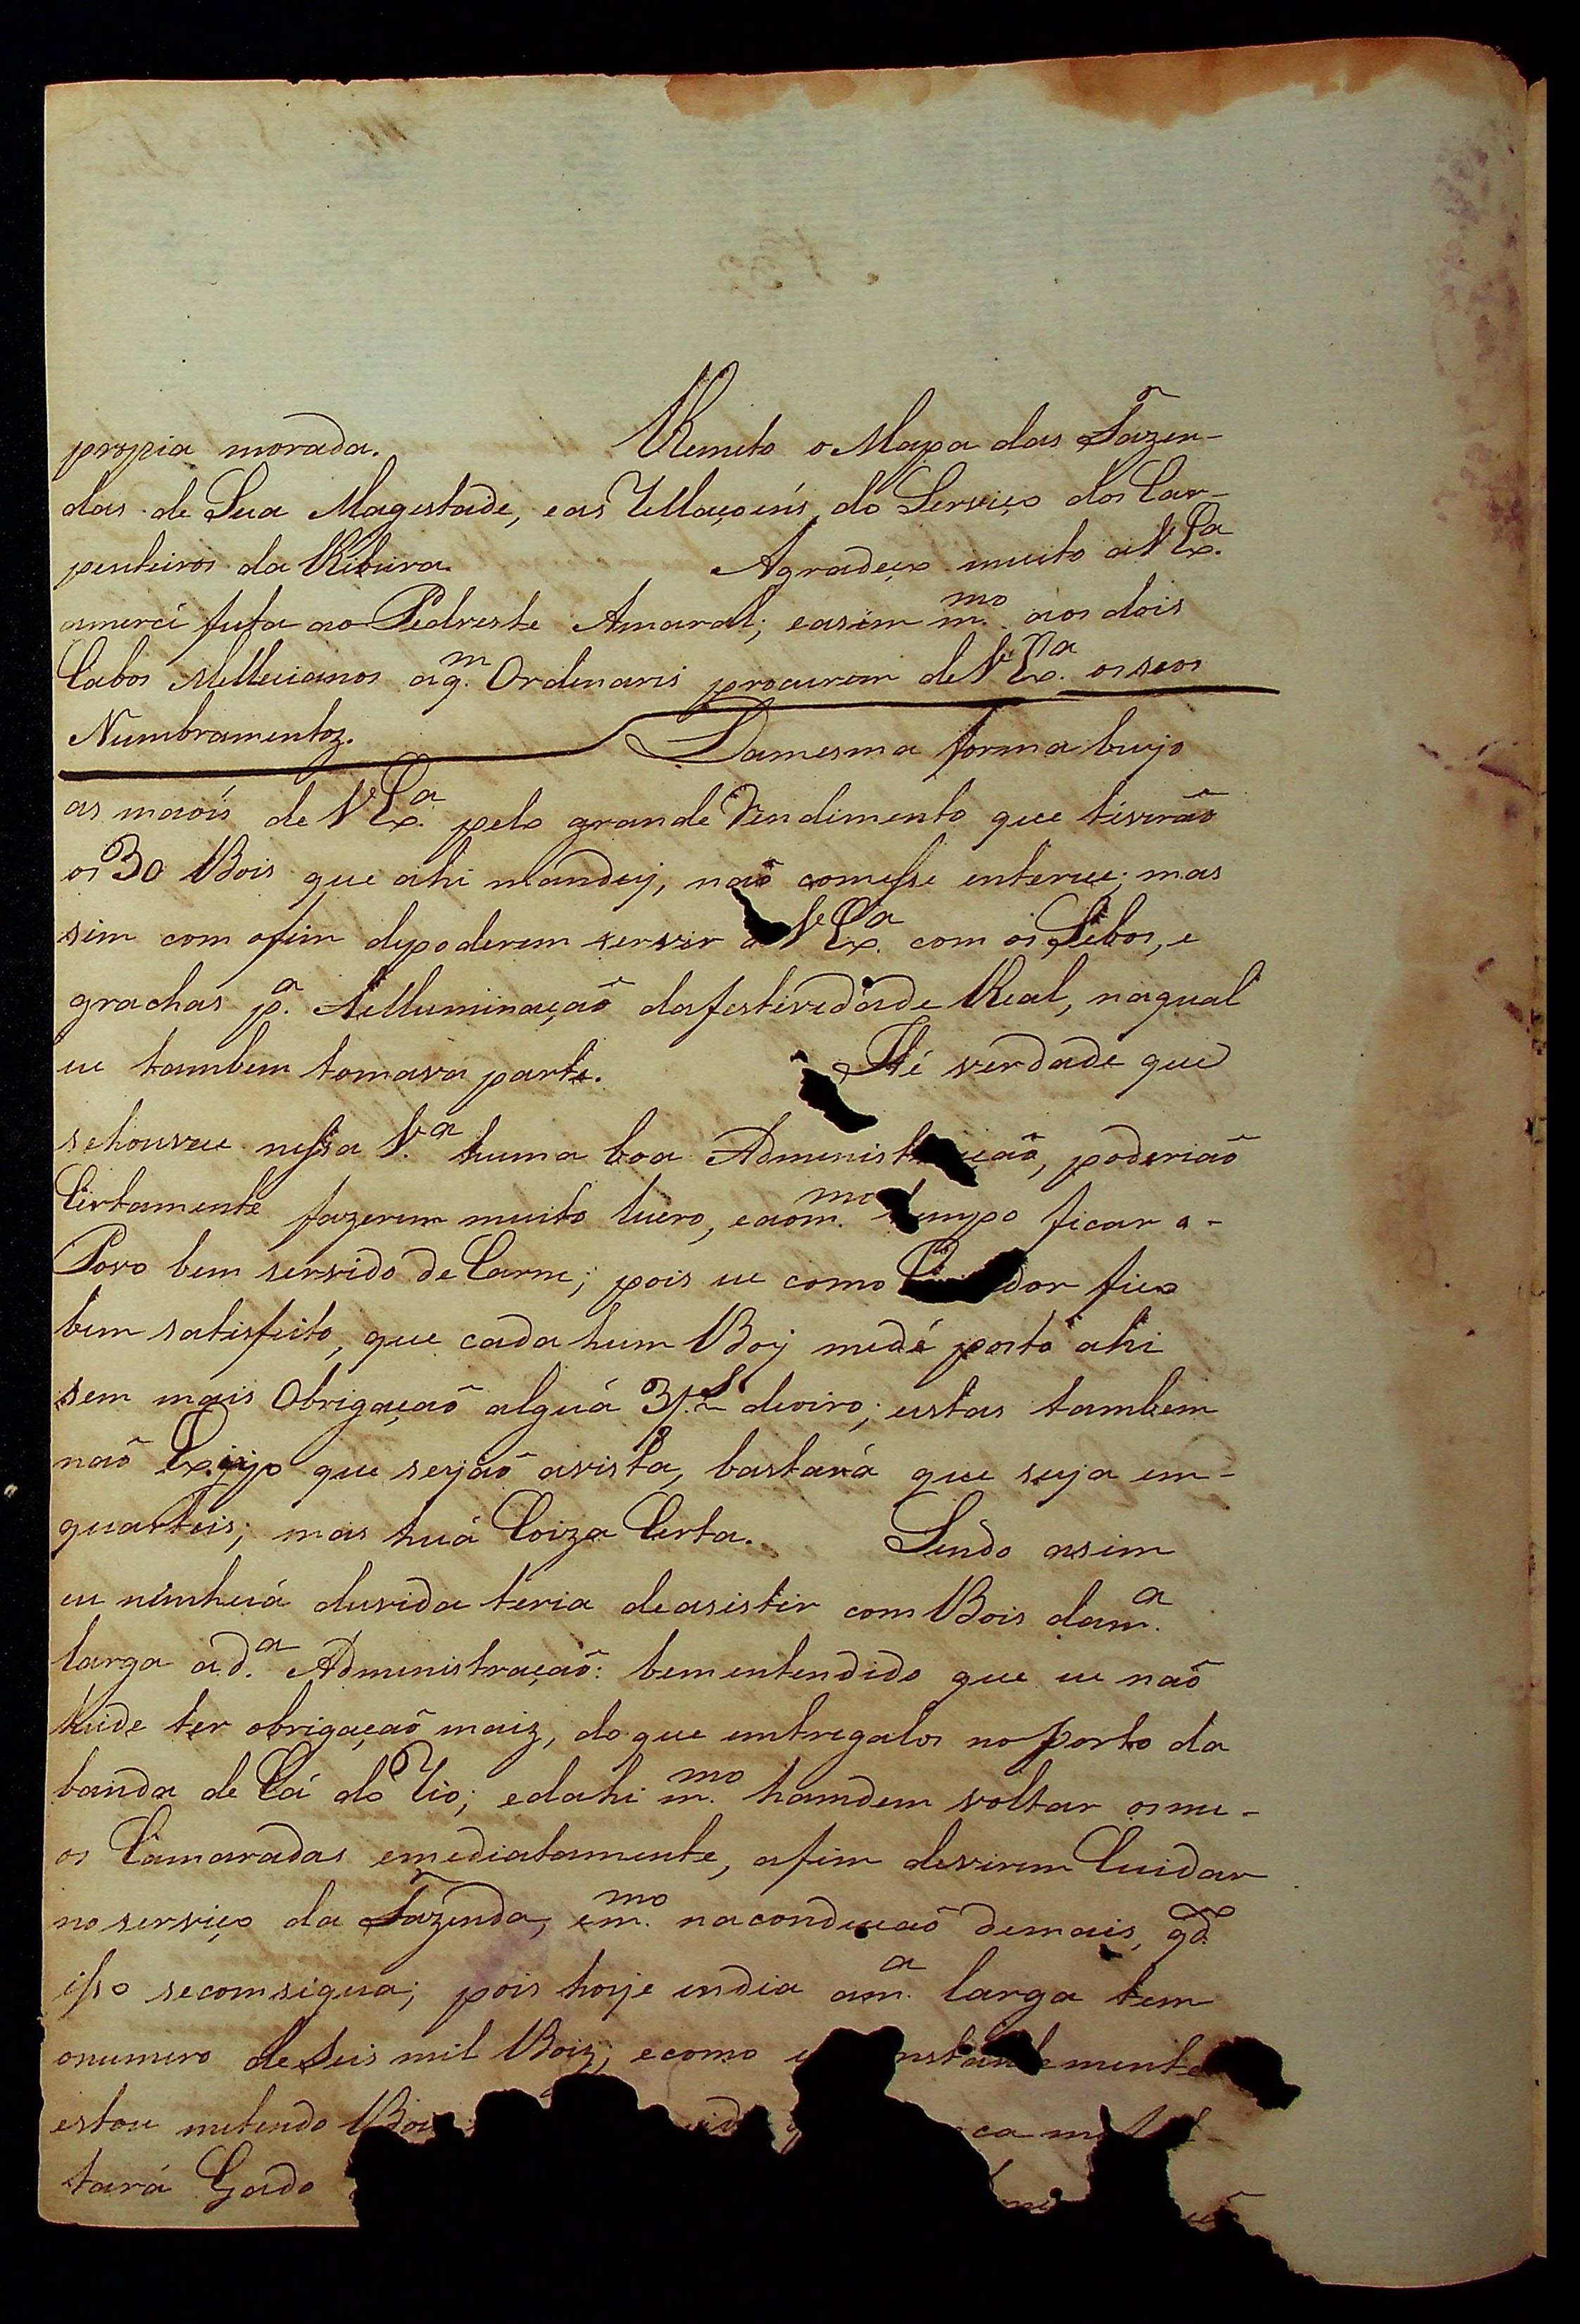 propia morada. Remeto o Mapa das Fazen-
das de Sua Magestade, e as Rellaçoens do Serviço dos Car-
penteiros da Ribeira. Agradeço muito a V Ex.ª
a mercê feita ao Pedreste Amaral; e asim m.mo aos dois
Cabos Melleceanos a q.m Ordenaris procurem de V Ex.ª os seos
Numbramentoz. Da mesma forma beijo
as maõs de V Ex.ª pelo grande Rendimento que tiveraõ
os 30 Bois que ahi mandey, naõ com esse enterece; mas
sim com o fim de poderem servir a V Ex.ª com os Sebos, e
grachas p.ª A elluminaçaõ da festividade Real, na qual
eu tambem tomava parte. Hé verdade que
se houvece nessa V.ª huma boa Administraçaõ, poderiaõ
Certamente fazerem muito lucro, e ao m.mo tempo ficar o-
Povo bem servido de Carne; pois eu como dor fico
bem satisfeito, que cada hum Boy me dé posto ahi
sem mais Obrigaçaõ alguá 3/8.s de oiro; e estas tambem
naõ Exijo que sejaõ a vista, bastará que seja em-
quarteis; mas huá Coiza Certa. Sendo asim
eu ninhuá duvida teria de asistir com Bois da m.ª
larga a d.ª Administraçaõ: bem entendido que eu naõ
heide ter obrigaçaõ maiz, do que entregalos no porto da
banda de Cá do Rio; e dahi m.mo hamdem voltar os me-
os Camaradas emediatamente, a fim de virem Cuidar
no serviço da Fazenda, e m.mo na conduçaõ de mais, q.do
isso se comsigua; pois hoje en dia a m.ª larga tem
o numero de Seis mil Boiz; e como constantemente
estou metendo Bois ca me fal-
tará Gado